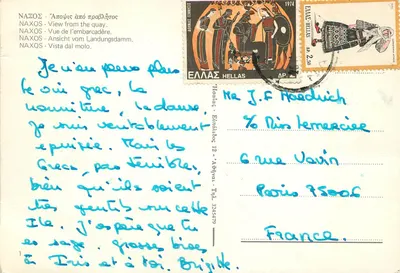 ΝΑΞΟΣ - Ἄποψις ἀπό προβλῆτος
NAXOS - View from the quay.
NAXOS - Vue de l'embarcadère.
NAXOS - Ansicht vom Landungsdamm.
NAXOS - Vista dal molo.
1974
ΕΛΛΑΣ HELLAS
ΕΛΛΑΣ HELLAS
2.50
Je n'en peux plus
le oui grec, la
nourriture, le
Je suis véritablement
épuisée. Mais les
Grecs, pas terribles,
bien qu'ils soient
très gentils sur cette
Ile. J'espère que tu
es sage. grosses bises
à Iris et à toi. Brigitte.
Mr J.F
c/o Miss Lemercier
6 rue Vavin
Paris 75006
France.